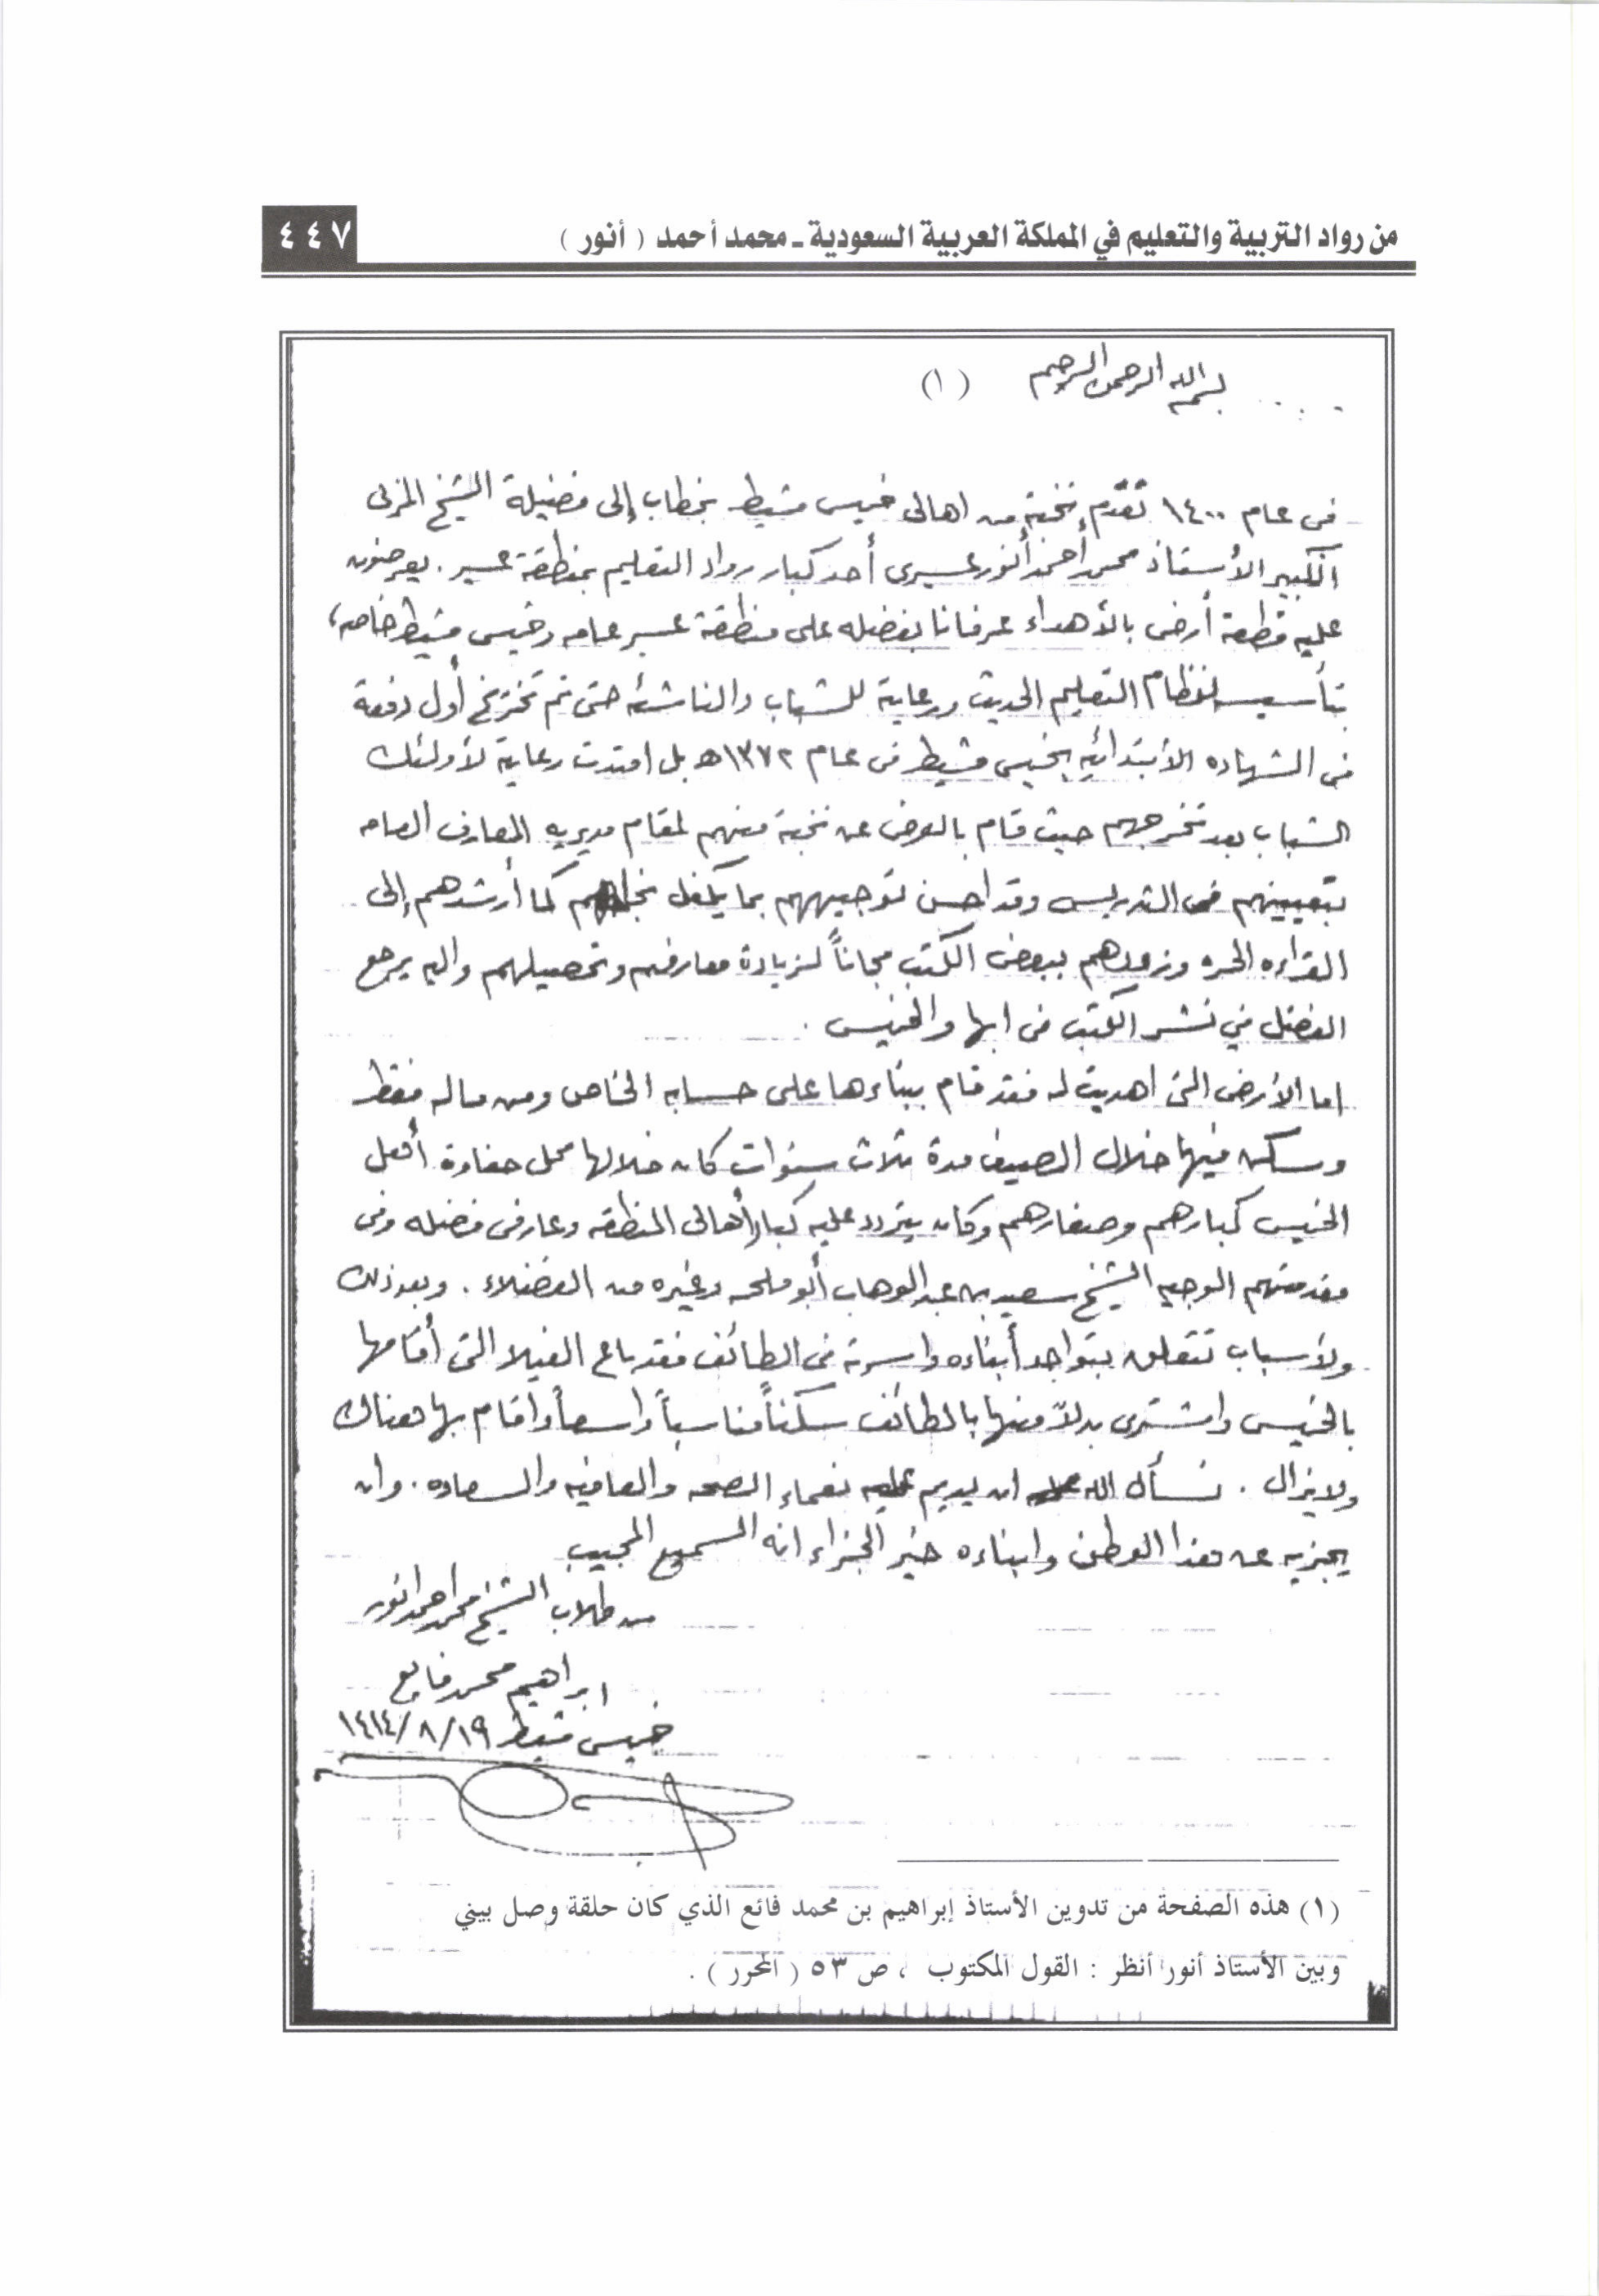 من رواد التربية والتعليم في المملكة العربية السعودية ـ محمد أحمد ( أنور )
٤٤٧
بسم الله الرحمن الرحيم (١)
فى عام ١٤٠٠ تقدّم نخبة من اهالى خميس مشيط بخطاب إلى فضيلة الشيخ المربى
الكبير الأستاذ محمد أحمد أنور عسيرى أحد كبار رواد التعليم بمنطقة عسير . يعرضون
عليه قطعة أرض بالأهداء عرفانا بفضله على منطقة عسير عامه وخميس مشيط خاصه،
بتأسيس لنظام التعليم الحديث ورعاية للشباب والناشئه حتى تم تخرّج أول دفعة
فى الشهاده الأبتدائيه بخميس مشيط فى عام ١٣٧٢ه بل امتدت رعاية لأولئك
الشباب بعد تخرجهم حيث قام بالعرض عن نخبة منهم لمقام مديريه المعارف العامه
بتعيينهم فى التدريس وقد احسن توجيههم بما يكفل نجاحهم كما أرشدهم إلى
القراءه الحره وزودهم ببعض الكتب مجاناً لزيادة معارفهم وتحصيلهم واليه يرجع
الفضل في نشر الكتب فى ابها والخميس .
اما الأرض التى اهديت له فقد قام ببناءها على حسابه الخاص ومن ماله فقط
وسكن فيها خلال الصيف مدة ثلاث سنوات كان خلالها محل حفاوة أهل
الخميس كبارهم وصغارهم وكان يتردد عليه كبار أهالى المنطقه وعارفى فضله وفى
مقدمتهم الوجيه الشيخ سعيد بن عبد الوهاب أبو ملحه وغيره من الفضلاء . وبعد ذلك
ولأسباب تتعلق بتواجد أبناءه واسرته فى الطائف فقد باع الفيلا التى أقامها
بالخميس واشترى بدلاً منها بالطائف سكناً مناسباً واسعاً واقام بها هناك
ولايزال . نسأل الله ان يديم عليه نعماء الصحه والعافيه والسعاده . وان
يجزيه عن هذا الوطن وابناءه خير الجزاء انه السميع المجيب
من طلاب الشيخ محمد احمد انور
ابراهيم محمد فايع
خميس مشيط ١٤١٤/٨/١٩
(١) هذه الصفحة من تدوين الأستاذ إبراهيم بن محمد فائع الذي كان حلقة وصل بيني
وبين الأستاذ أنور أنظر : القول المكتوب ، ص ٥٣ ( المحرر ) .